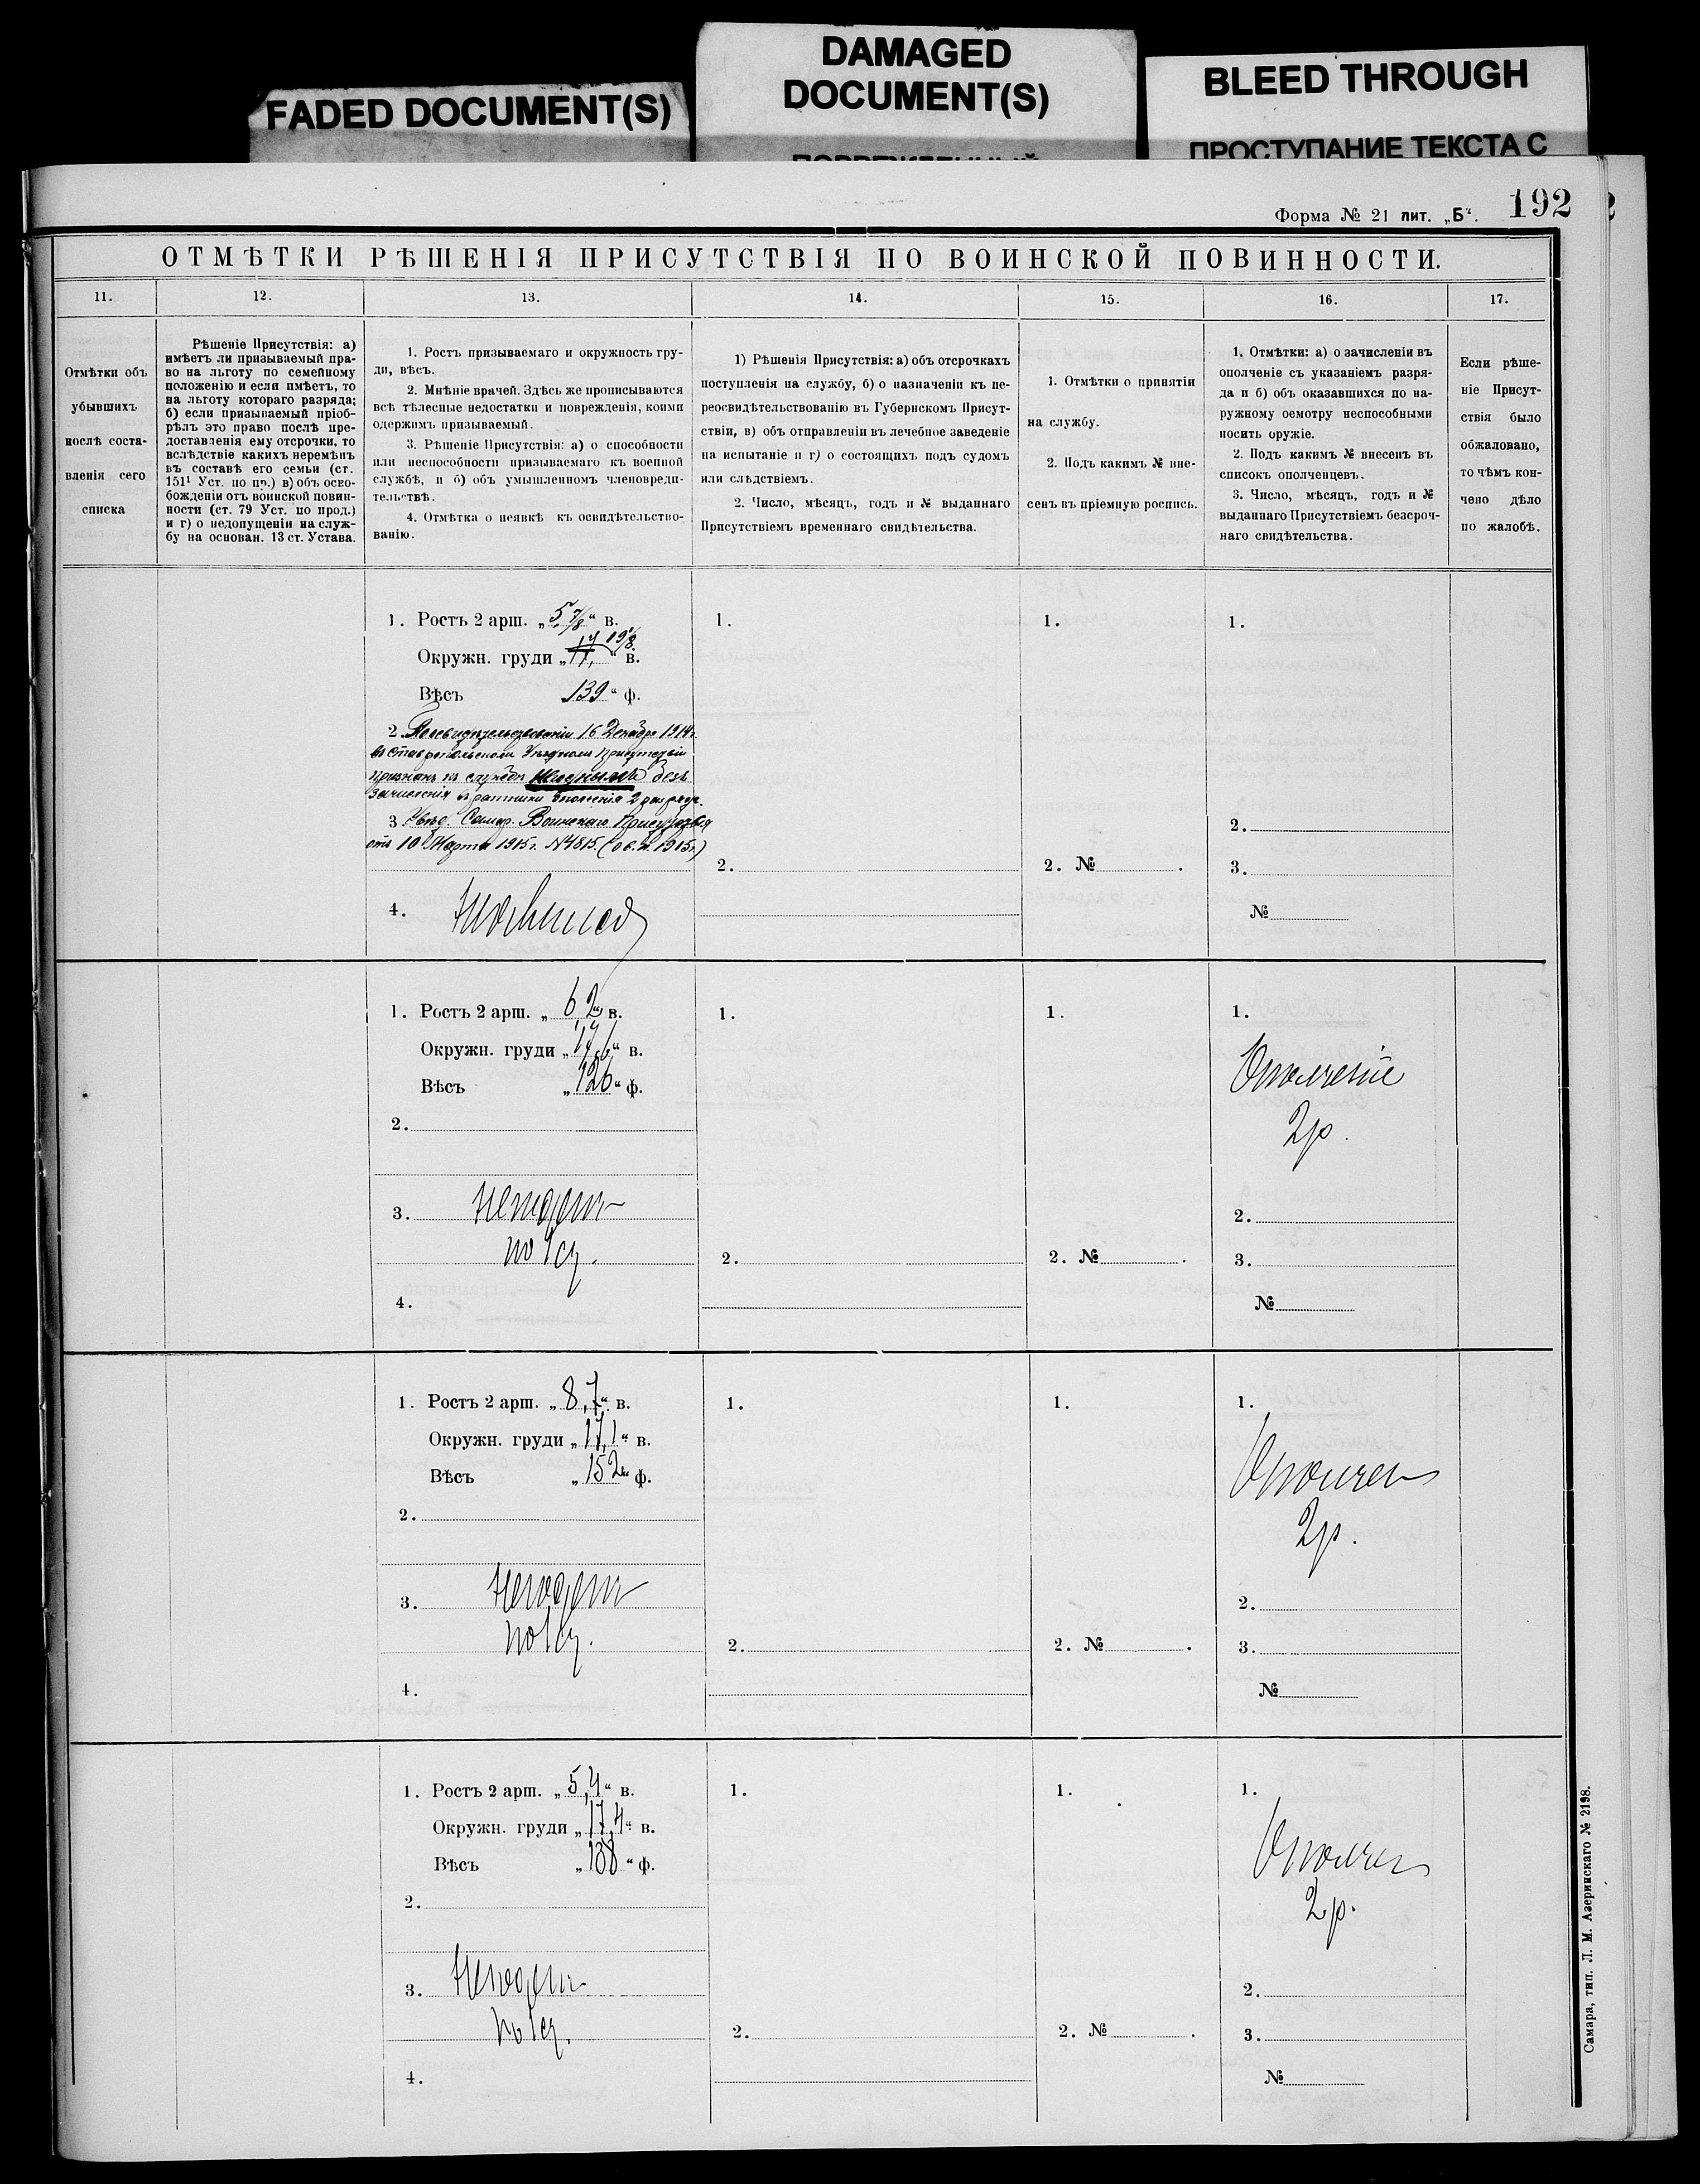 FADED DOCUMENT(S)
DAMAGED
DOCUMENT(S)
BLEED THROUGH
ПРОСТУПАНИЕ ТЕКСТА С
Форма № 21 лит. „Б“. 192
ОТМѢТКИ РѢШЕНІЯ ПРИСУТСТВІЯ ПО ВОИНСКОЙ ПОВИННОСТИ.
11.
Отмѣтки объ
убывшихъ
послѣ соста-
вленія сего
списка
12.
Рѣшеніе Присутствія: а)
имѣетъ ли призываемый пра-
во на льготу по семейному
положенію и если имѣетъ, то
на льготу котораго разряда;
б) если призываемый пріоб-
рѣлъ это право послѣ пре-
доставленія ему отсрочки, то
вслѣдствіе какихъ перемѣнъ
въ составѣ его семьи (ст.
151¹ Уст. по пр.) в) объ осво-
божденіи отъ воинской повин-
ности (ст. 79 Уст. по прод.)
и г) о недопущеніи на служ-
бу на основан. 13 ст. Устава.
13.
1. Ростъ призываемаго и окружность гру-
ди, вѣсъ.
2. Мнѣніе врачей. Здѣсь же прописываются
всѣ тѣлесные недостатки и поврежденія, коими
одержимъ призываемый.
3. Рѣшеніе Присутствія: а) о способности
или неспособности призываемаго къ военной
службѣ, и б) объ умышленномъ членовреди-
тельствѣ.
4. Отмѣтка о неявкѣ къ освидѣтельство-
ванію.
14.
1) Рѣшенія Присутствія: а) объ отсрочкахъ
поступленія на службу, б) о назначеніи къ пе-
реосвидѣтельствованію въ Губернскомъ Присут-
ствіи, в) объ отправленіи въ лечебное заведеніе
на испытаніе и г) о состоящихъ подъ судомъ
или слѣдствіемъ.
2. Число, мѣсяцъ, годъ и № выданнаго
Присутствіемъ временнаго свидѣтельства.
15.
1. Отмѣтки о принятіи
на службу.
2. Подъ какимъ № вне-
сенъ въ пріемную роспись.
16.
1. Отмѣтки: а) о зачисленіи въ
ополченіе съ указаніемъ разря-
да и б) объ оказавшихся по на-
ружному осмотру неспособными
носить оружіе.
2. Подъ какимъ № внесенъ въ
списокъ ополченцевъ.
3. Число, мѣсяцъ, годъ и №
выданнаго Присутствіемъ безсроч-
наго свидѣтельства.
17.
Если рѣше-
ніе Присут-
ствія было
обжаловано,
то чѣмъ кон-
чено дѣло
по жалобѣ.
1. Ростъ 2 арш. „5 7/8“ в.
Окружн. груди „ “ в.
Вѣсъ 139“ ф.
2. 16 Декабря 1914 г.
въ Ставропольскомъ Уѣздномъ Присутствіи
признанъ къ службѣ безъ
зачисленія въ ратники ополченія 2 разряда.
3. Увѣд. Самар. Воинскаго Присутствія
отъ 10 Марта 1915 г. №4815.
4.
1.
2.
1.
2. №
1.
2.
3.
№
1. Ростъ 2 арш. „6,2“ в.
Окружн. груди „17,6“ в.
Вѣсъ „126“ ф.
2.
3. Негоденъ
по 1 ст.
4.
1.
2.
1.
2. №
1.
Ополченіе
2 р.
2.
3.
№
1. Ростъ 2 арш. „8,7“ в.
Окружн. груди „17,1“ в.
Вѣсъ „152“ ф.
2.
3. Негоденъ
по 1 ст.
4.
1.
2.
1.
2. №
1.
Ополчен
2 р.
2.
3.
№
1. Ростъ 2 арш. „5,4“ в.
Окружн. груди „17,4“ в.
Вѣсъ „138“ ф.
2.
3. Негоденъ
по 1 ст.
4.
1.
2.
1.
2. №
1.
Ополчен
2 р.
2.
3.
№
Самара, тип. Л. М. Азеринскаго № 2198.